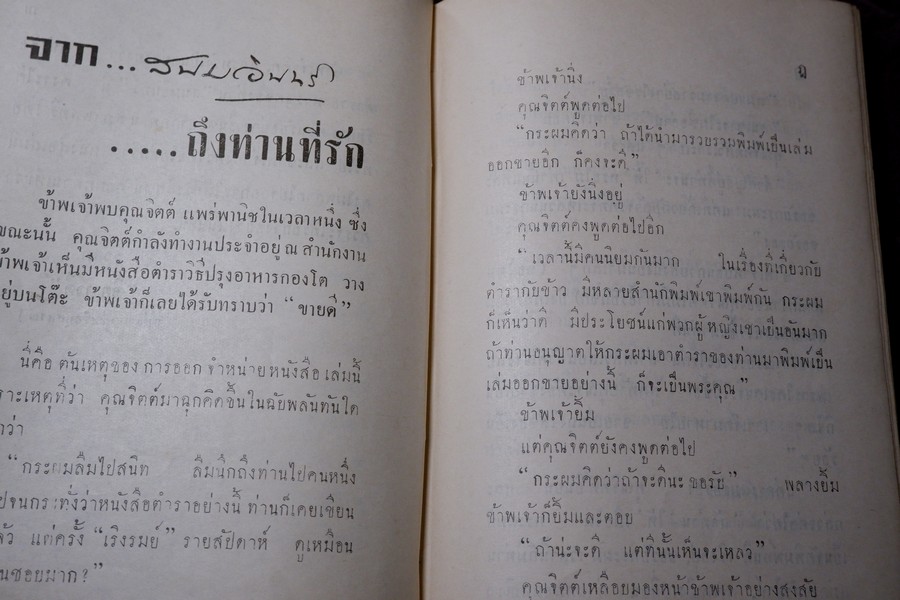 จาก...
.....ถึงท่านที่รัก
ข้าพเจ้าพบคุณจิตต์ แพร่พานิชในเวลาหนึ่ง ซึ่ง
ขณะนั้น คุณจิตต์กำลังทำงานประจำอยู่ ณ สำนักงาน
ข้าพเจ้าเห็นมีหนังสือตำราวิธีปรุงอาหารกองโต วาง
อยู่บนโต๊ะ ข้าพเจ้าก็เลยได้รับทราบว่า “ขายดี”
นี่คือ ต้นเหตุของ การออก จำหน่ายหนังสือ เล่มนี้
เพราะเหตุที่ว่า คุณจิตต์มาฉุกคิดขึ้นในฉับพลันทันใด
ว่า
“กระผมลืมไปสนิท ลืมนึกถึงท่านไปคนหนึ่ง
จนกระทั่งว่าหนังสือตำราอย่างนี้ ท่านก็เคยเขียน
แต่ครั้ง “เริงรมย์” รายสัปดาห์ ดูเหมือน
ชอบมาก?”
ข้าพเจ้านิ่ง
คุณจิตต์พูดต่อไป
“กระผมคิดว่า ถ้าได้นำมารวบรวมพิมพ์เป็นเล่ม
ออกขายอีก ก็คงจะดี”
ข้าพเจ้ายังนิ่งอยู่
คุณจิตต์คงพูดต่อไปอีก
“เวลานี้มีคนนิยมกันมาก ในเรื่องที่เกี่ยวกับ
ตำรากับข้าว มีหลายสำนักพิมพ์เขาพิมพ์กัน กระผม
ก็เห็นว่าดี มีประโยชน์แก่พวกผู้หญิงเขาเป็นอันมาก
ถ้าท่านอนุญาตให้กระผมเอาตำราของท่านมาพิมพ์เป็น
เล่มออกขายอย่างนี้ ก็จะเป็นพระคุณ”
ข้าพเจ้ายิ้ม
แต่คุณจิตต์ยังคงพูดต่อไป
“กระผมคิดว่าถ้าจะดีนะ ขอรับ” พลางยิ้ม
ข้าพเจ้าก็ยิ้มและตอบ
“ถ้าน่ะจะดี แต่ที่นั้นเห็นจะเหลว”
คุณจิตต์เหลือบมองหน้าข้าพเจ้าอย่างสงสัย